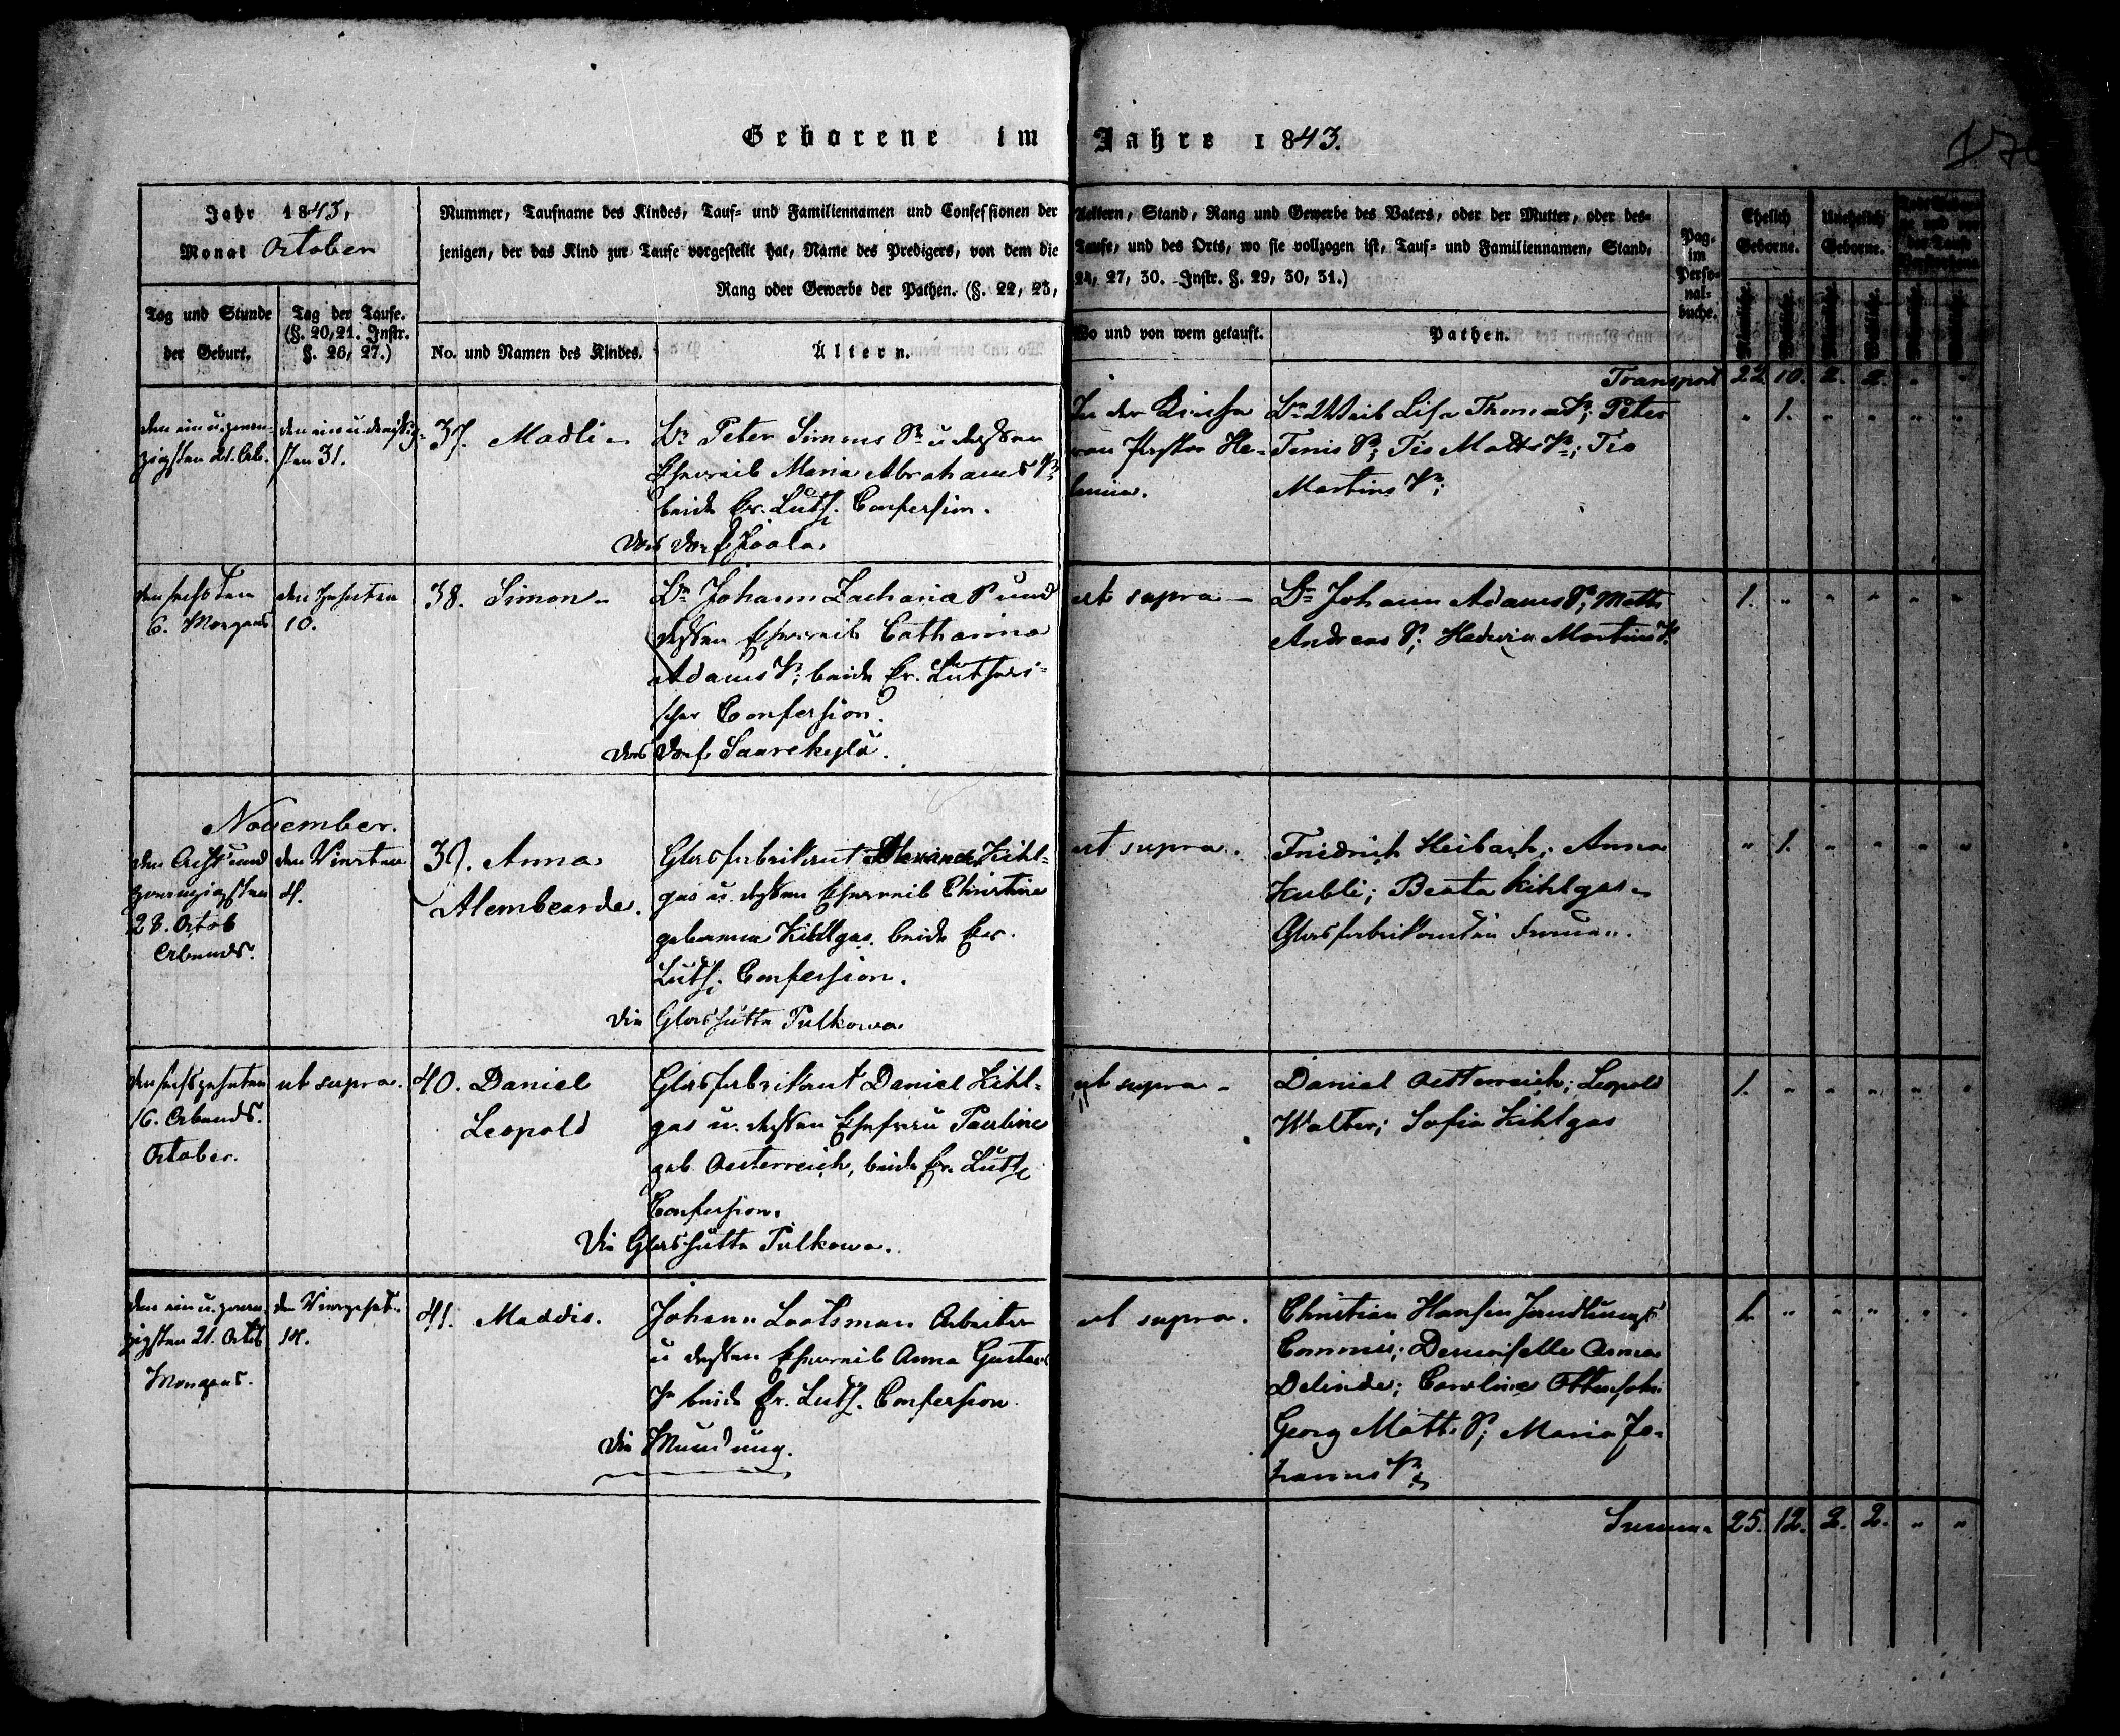 Geborene im Jahre 1843.
Jahr 1843,
Monat October
Nummer, Taufname des Kindes, Tauf- und Familiennamen und Confessionen der Aeltern, Stand, Rang und Gewerbe des Vaters, oder der Mutter, oder des-
jenigen, der das Kind zur Taufe vorgestellt hat, Name des Predigers, von dem die Taufe, und des Orts, wo sie vollzogen ist, Tauf- und Familiennamen, Stand,
Rang oder Gewerbe der Pathen. (§. 22, 23, 24, 27, 30. Instr. §. 29, 30, 31.)
Tag und Stunde
der Geburt.
Tag der Taufe.
(§. 20, 21. Instr.
§. 26, 27.)
No. und Namen des Kindes.
Ältern.
Wo und von wem getauft.
Pathen.
Pag.
im
Perso-
nal-
buche.
Ehelich
Geborne.
Unehelich
Geborne.
Männliche.
Weibliche.
Männliche.
Weibliche.
Männliche.
Weibliche.
Transport 22 10. 2. 2. " "
den ein u. zwan-
zigsten 21.
den ein u. dreißig-
sten 31.
37. Madli
Peter Simons u dessen
Eheweib Maria Abrahams
beide Ev. Luth. Confession.
Das Dorf
In der Kirche
von Pastor He-
Weib Lisa Thomas; Peter
Tenis; Tio Matts; Tio
Martins
" 1. " " " "
den sechsten
6. Morgens
den zehnten
10.
38. Simon
Johann Zacharia und
dessen Eheweib Catharina
Adams; beide Ev. Lutheri-
scher Confession.
Das Dorf Saarekylä.
ut supra
Johann Adams; Matts
Andreas; Hedwig Martins
1. " " " " "
November.
den Acht und
zwanzigsten
28. Octob
Abends.
den Vierten
4.
39. Anna
Glasfabrikant Alexander Kihl-
gas u. dessen Eheweib Christina
geborene Kihlgas beide Ev.
Luth. Confession.
Die Glashütte Pulkowa
ut supra.
Friedrich Heibach; Anna
Kubli; Beata Kihlgas
" 1. " " " "
den sechszehnten
16. Abends.
October.
ut supra.
40. Daniel
Leopold
Glasfabrikant Daniel Kihl-
gas u. dessen Ehefrau Pauline
geb. Oesterreich, beide Ev. Luth
Confession.
Die Glashütte Pulkowa.
ut supra
Daniel Oesterreich; Leopold
Walter; Sofia Kihlgas
1. " " " " "
den ein u. zwan
zigsten 21. Octob
Morgens.
den Vierzehnt.
14.
41. Maddis.
Johann Lootsman Arbeiter
u dessen Eheweib Anna Gustav
beide Ev. Luth. Confession
Die Mündung.
ut supra.
Christian Hansen Handlungs
Commis; Demoiselle Anna
Delinde; Caroline
Georg Matts; Maria Jo-
hanns
1. " " " " "
Summa 25. 12. 2. 2. " "